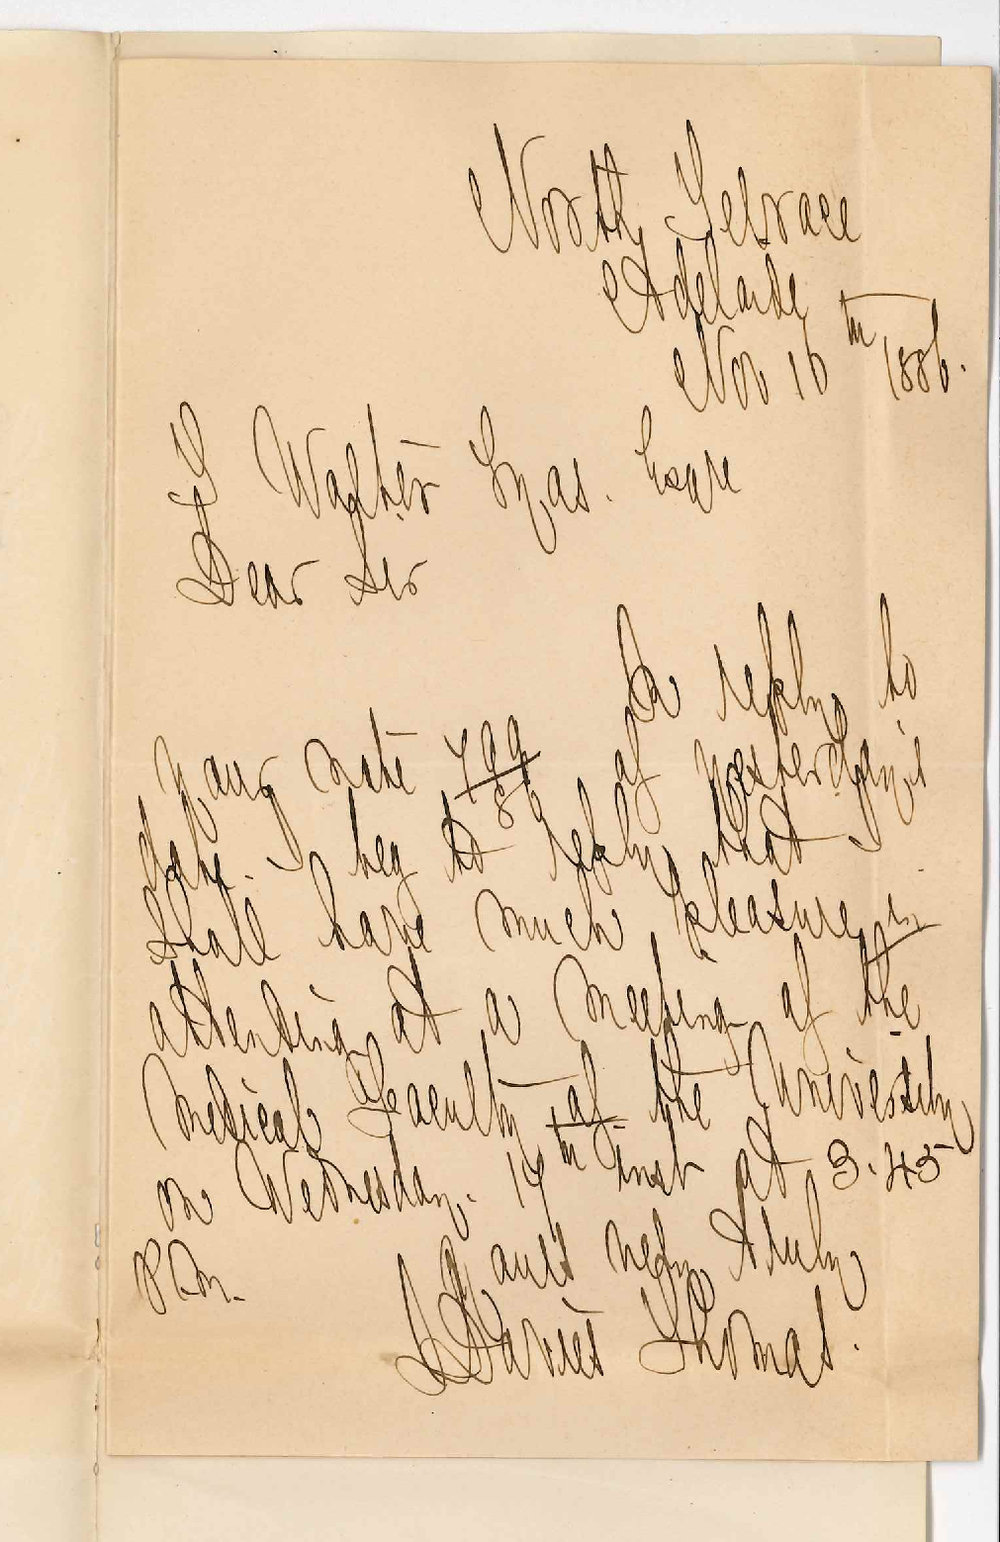 North Terrace
Adelaide
Nov 16th 1886.
J Walter Tyas. Esqre
Dear Sir
In reply to
your note 799/86 of yesterday's
date. I beg to reply that I
shall have much pleasure in
attending at a meeting of the
Medical Faculty of the University
on Wednesday. 17th inst at 3.45
P.M.
Yours very truly
J Davies Thomas.